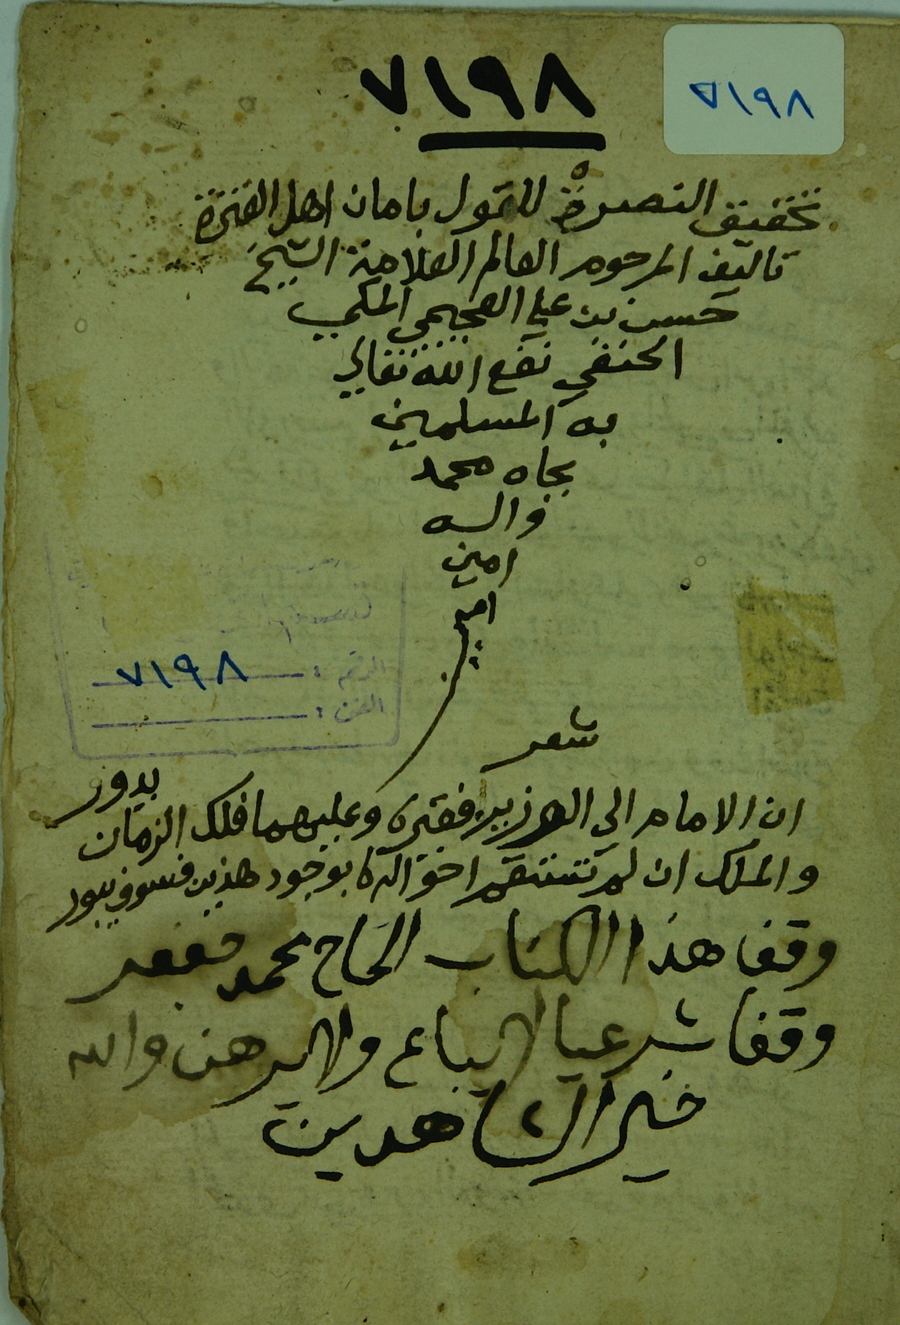 ٧١٩٨
٧١٩٨
تحقيق النصرة للقول بامان اهل الفترة
تاليف المرحوم العالم العلامة الشيخ
حسن بن علي العجيمي المكي
الحنفي نفع الله تعالى
به المسلمين
بجاه محمد
واله
امين
امين
شعر
ان الامام الى الوزير فقيرة وعليهما فلك الزمان يدور
والملك ان لم تستقم احواله بوجود هذين فسوف يبور
وقفا هذا الكتاب الحاج محمد جعفر
وقفا شرعيا لا يباع ولا يرهن والله
خير الشاهدين
الرقم : ٧١٩٨
الفن :